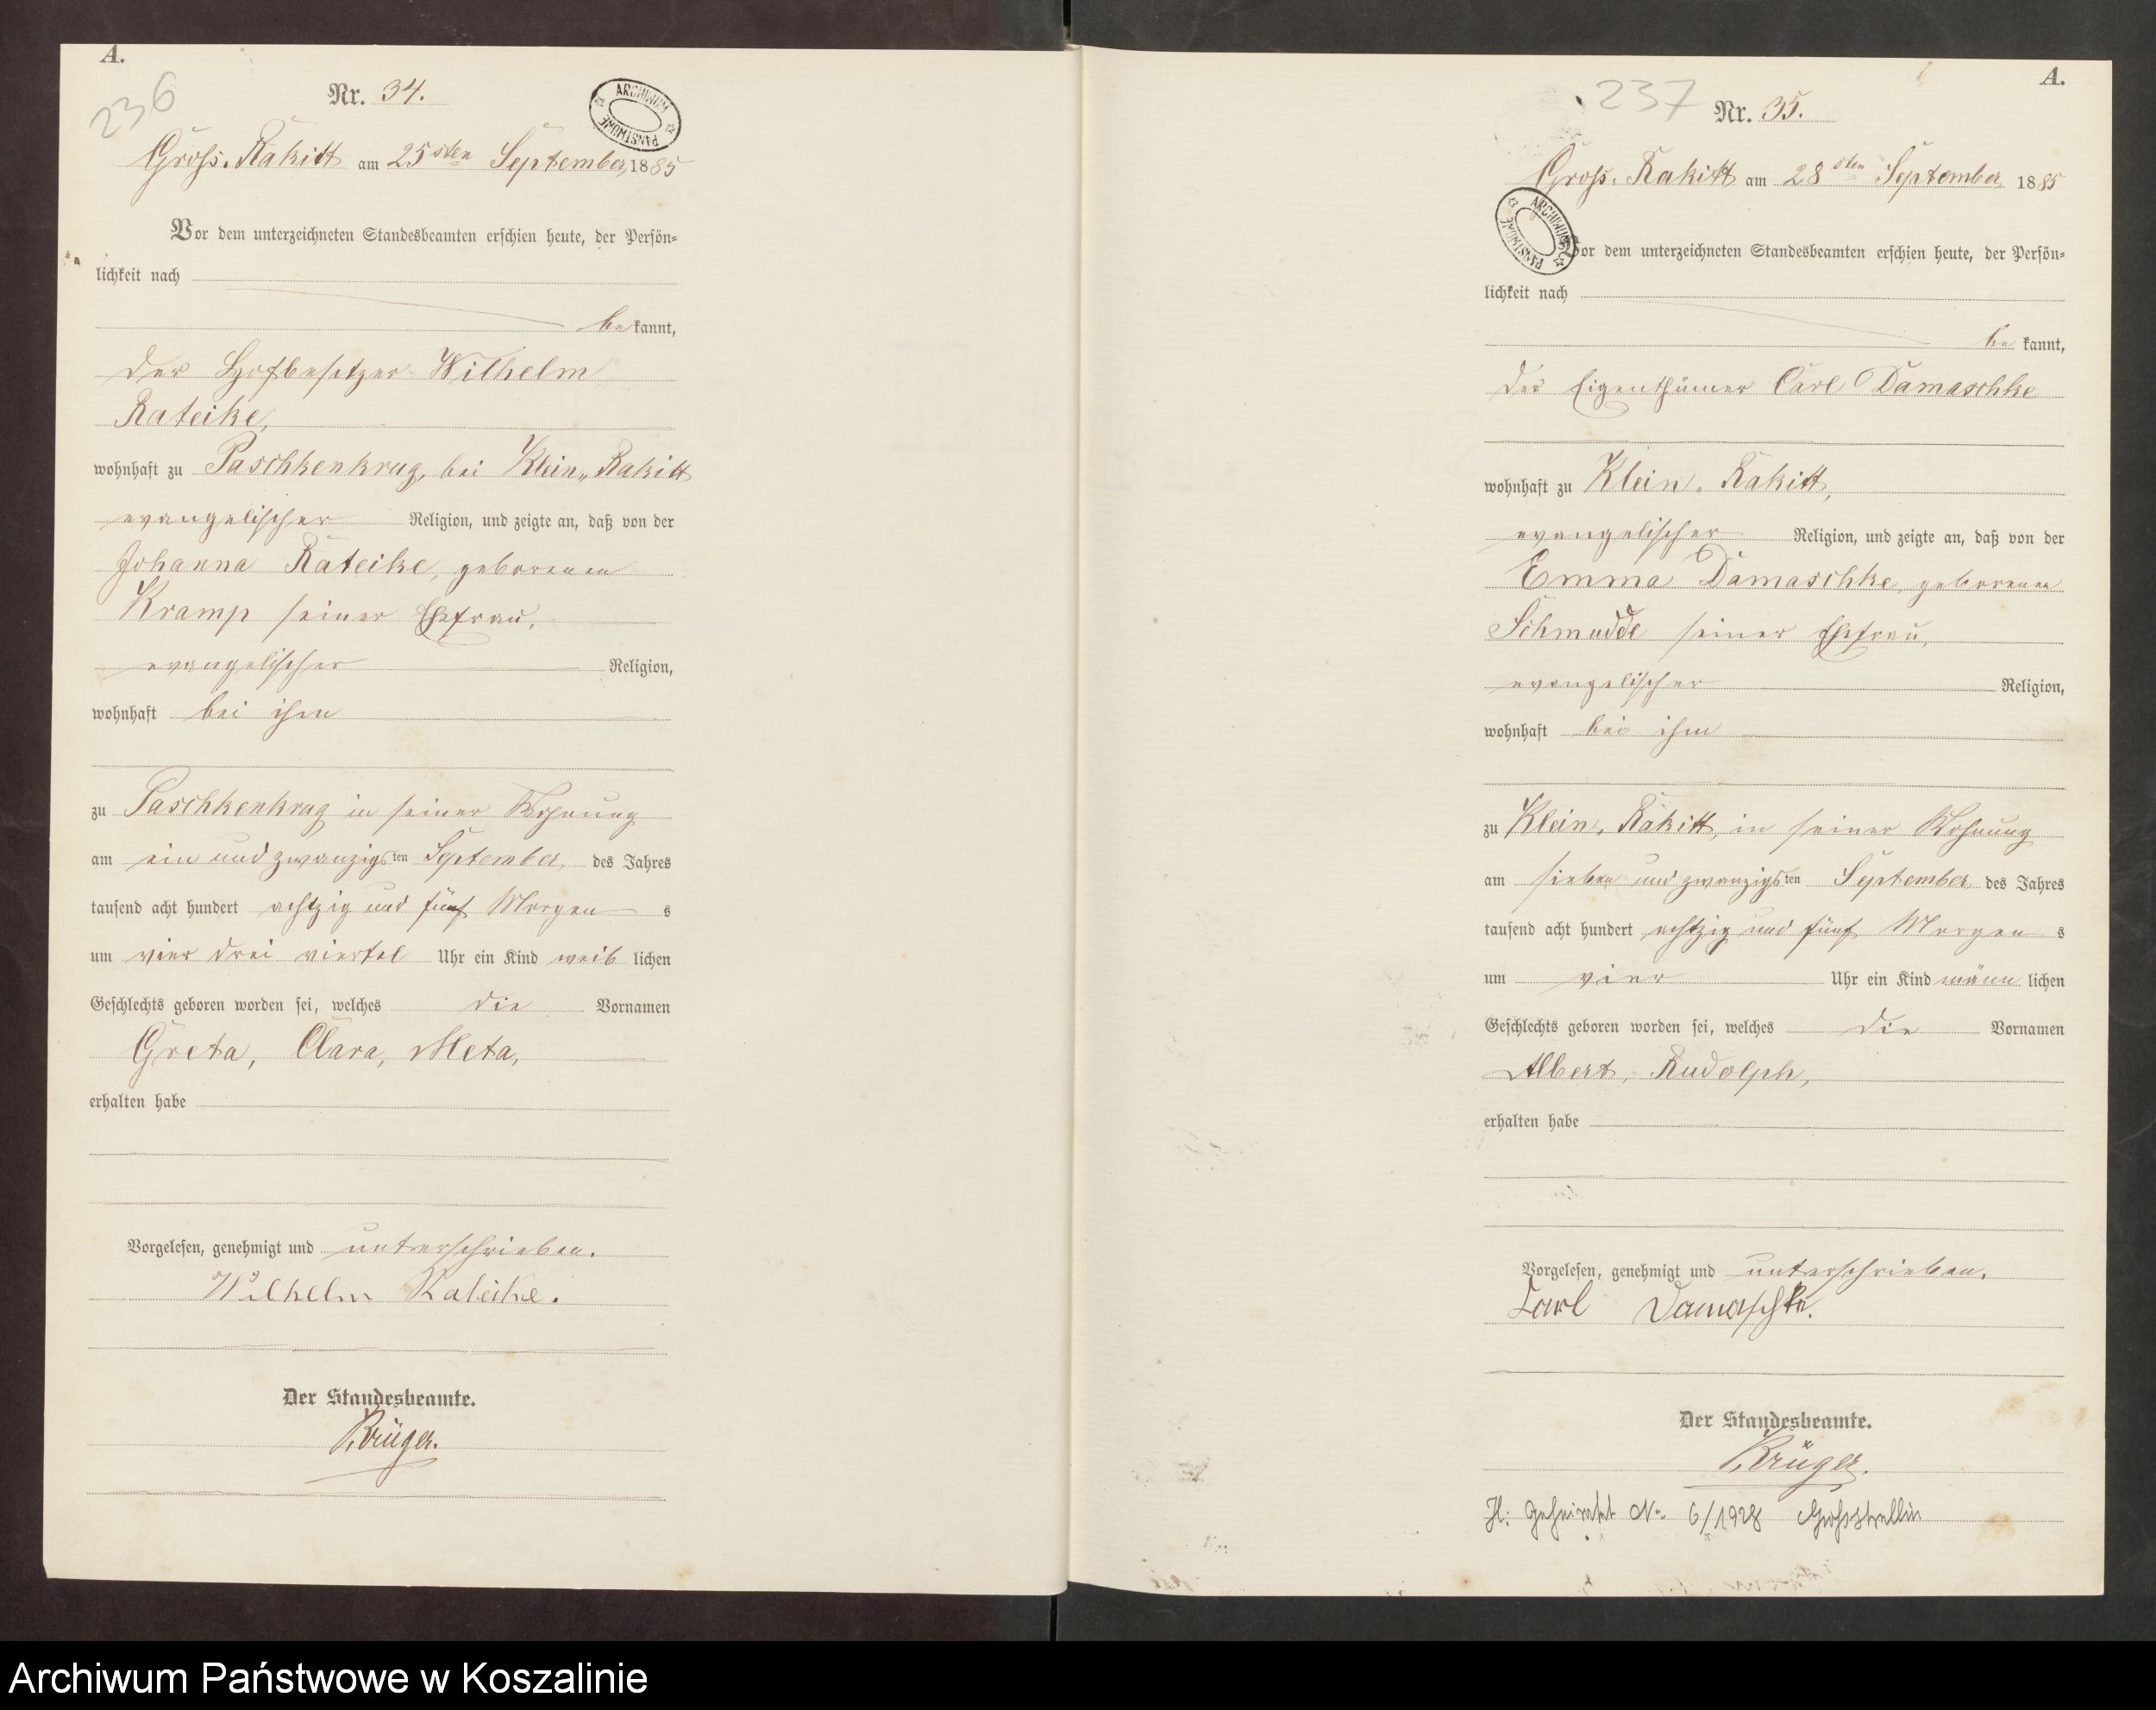 A.
236
Nr. 34.
ARCHIWUM PAŃSTWOWE
Gross-Rakitt am 25sten September 1885
Vor dem unterzeichneten Standesbeamten erschien heute, der Persön-
lichkeit nach
bekannt,
der Hofbesitzer Wilhelm
Rateike,
wohnhaft zu Paschkenkrug, bei Klein-Rakitt
evangelischer Religion, und zeigte an, daß von der
Johanna Rateike, geborenen
Kramp seiner Ehefrau,
evangelischer Religion,
wohnhaft bei ihm
zu Paschkenkrug in seiner Wohnung
am ein und zwanzigsten September des Jahres
tausend acht hundert achtzig und fünf Morgens
um vier drei viertel Uhr ein Kind weiblichen
Geschlechts geboren worden sei, welches die Vornamen
Greta, Clara, Meta,
erhalten habe
Vorgelesen, genehmigt und unterschrieben.
Wilhelm Rateike.
Der Standesbeamte.
Krüger.
A.
237
Nr. 35.
Gross-Rakitt am 28sten September 1885
ARCHIWUM PAŃSTWOWE
Vor dem unterzeichneten Standesbeamten erschien heute, der Persön-
lichkeit nach
bekannt,
der Eigenthümer Carl Damaschke
wohnhaft zu Klein-Rakitt,
evangelischer Religion, und zeigte an, daß von der
Emma Damaschke, geborenen
Schmudde seiner Ehefrau,
evangelischer Religion,
wohnhaft bei ihm
zu Klein-Rakitt, in seiner Wohnung
am sieben und zwanzigsten September des Jahres
tausend acht hundert achtzig und fünf Morgens
um vier Uhr ein Kind männlichen
Geschlechts geboren worden sei, welches die Vornamen
Albert, Rudolph,
erhalten habe
Vorgelesen, genehmigt und unterschrieben.
Carl Damaschke.
Der Standesbeamte.
Krüger.
geheiratet No 6/1928
Archiwum Państwowe w Koszalinie